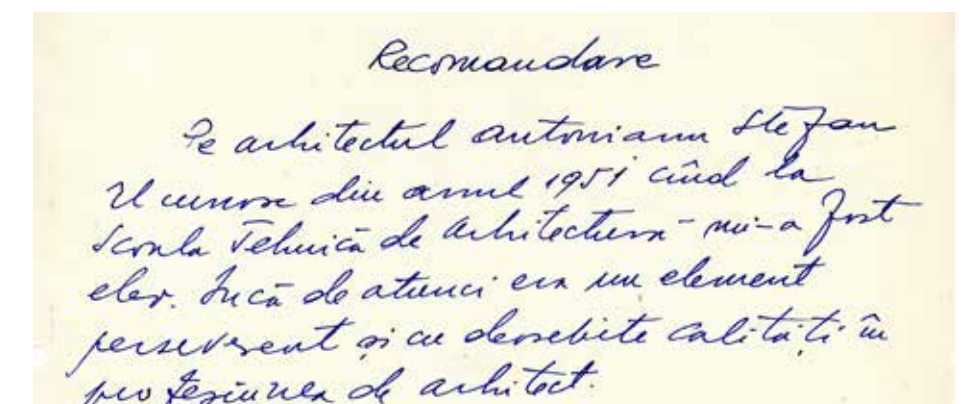 Recomandare
Pe arhitectul Antonianu Ștefan
îl cunosc din anul 1951 cînd la
Școala Tehnică de Arhitectură mi-a fost
elev. Încă de atunci era un element
perseverent și cu deosebite calități în
profesiunea de arhitect.